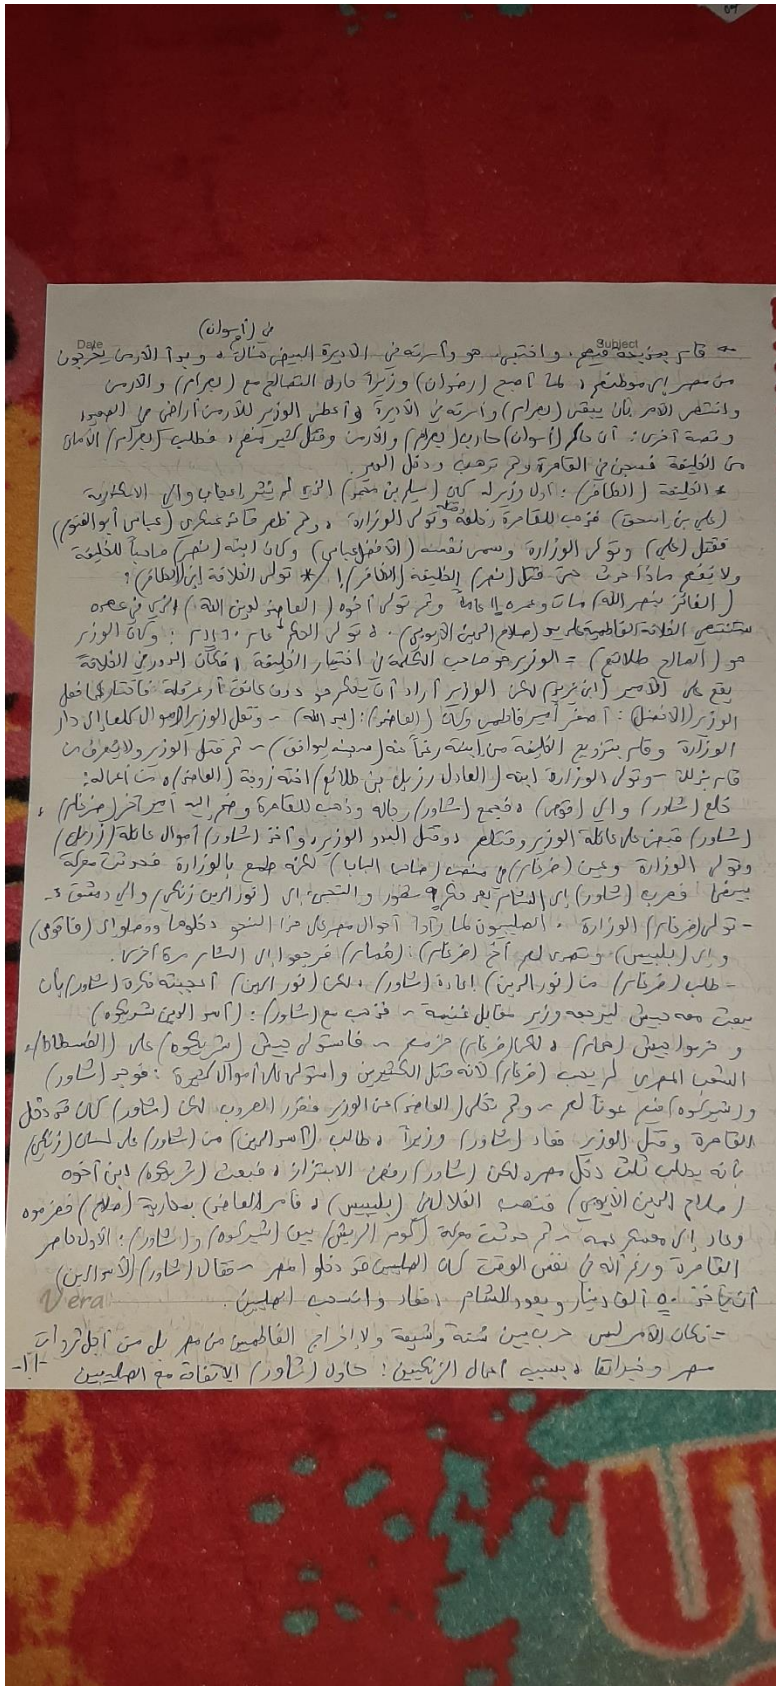 في (أسوان)
Date Subject
قام بمذبحة فيهم، واختبى هو وأسرته في الأديرة البيض هناك، وبدأ الأرمن يخرجون
من مصر إلى موطنهم، لما أصبح (رضوان) وزيراً حاول التصالح مع (بهرام) والأرمن
وانتهى الأمر بأن يبقى (بهرام) وأسرته في الأديرة وأعطى الوزير للأرمن أراضي في الصعيد
وقصة أخرى: أن حاكم (أسوان) حارب (بهرام) والأرمن وقتل كثير منهم، فطلب (بهرام) الأمان
من الخليفة فسجن في القاهرة وثم ترهب ودخل الدير.
* الخليفة (الظافر): أول وزير له كان (سليم بن) الذي لم يثير إعجاب والي الاسكندرية
(علي بن إسحق) فذهب للقاهرة وخلعه وتولى الوزارة، وثم ظهر قائد عسكري (عباس أبو الفتوح)
فقتل (علي) وتولى الوزارة وسمى نفسه (الأفضل عباس) وكان ابنه (نصر) صاحباً للخليفة
ولا يُفهم ماذا حدث حتى قتل (نصر) الخليفة (الظافر)! * تولى الخلافة ابن (الظافر):
(الفائز بنصر الله) مات وعمره 11 عاماً وثم تولى أخوه (العاضد لدين الله) الذي في عصره
ستنتهي الخلافة الفاطمية على يد (صلاح الدين الأيوبي). تولى الحكم عام : وكان الوزير
هو (الصالح طلائع) = الوزير هو صاحب الكلمة في اختيار الخليفة، فكان الدور في الخلافة
يقع على الأمير لكن الوزير أراد أن يحكم هو دون عائق أو عرقلة فاختار كما فعل
الوزير (الأفضل): أصغر أمير فاطمي وكان (العاضد): (عبد الله) ~ ونقل الوزير الأموال كلها إلى دار
الوزارة وقام بتزويج الخليفة من ابنته رغماً عنه ~ ثم قتل الوزير ولا يُعرف من
قام بذلك - وتولى الوزارة ابنه (العادل رزيك بن طلائع) أخته زوجة (العاضد)، من أعماله:
خلع (شاور) والي (قوص)، فجمع (شاور) رجاله وذهب للقاهرة وضم إليه أمير آخر (ضرغام)،
(شاور) قبض على عائلة الوزير وقتلهم، وقتل الوزير، وأخذ (شاور) أموال عائلة
وتولى الوزارة وعين (ضرغام) في منصب (صاحب الباب) لكنه طمع بالوزارة فحدثت معركة
بينهما فهرب (شاور) إلى الشام بعد حكم 9 شهور والتجئ إلى (نور الدين زنكي) والي دمشق
- تولى (ضرغام) الوزارة. الصليبيون لما رأوا أحوال مصر على هذا النحو دخلوها ووصلوا إلى (فاقوس)
وإلى (بلبيس) وتصدى لهم أخ (ضرغام): (هُمام) فرجعوا إلى الشام مرة أخرى.
- طلب (ضرغام) من (نور الدين) إعادة (شاور)، لكن (نور الدين) أعجبته فكرة (شاور) بأن
يبعث معه جيش ليرجعه وزير مقابل غنيمة ~ فذهب مع (شاور): (أسد الدين شيركوه)
وحاربوا جيش (همام)، لكن (ضرغام) هزمهم ~ فاستولى جيش (شيركوه) على (الفسطاط)،
الشعب المصري لم يحب (ضرغام) لأنه قتل الكثيرين واستولى على أموال كثيرة: فوجد (شاور)
و(شيركوه) منهم عوناً لهم ~ وثم تخلى (العاضد) عن الوزير فقرر الهروب لكن (شاور) كان قد دخل
القاهرة وقتل الوزير فعاد (شاور) وزيراً، طالب (أسد الدين) من (شاور) على لسان (زنكي)
بأنه يطلب ثلث دخل مصر، لكن (شاور) رفض الابتزاز، فبعث (شيركوه) ابن أخوه
(صلاح الدين الأيوبي) فنهب الغلال في (بلبيس)، فأمر العاضد بمحاربة (صلاح) فهزموه
وعاد إلى معسكر عمه ~ ثم حدثت معركة (كوم الريش) بين (شيركوه) و(شاور): الأول حاصر
القاهرة ورغم أنه في نفس الوقت كان الصليبيين قد دخلوا مصر ~ فقال (شاور) (لأسد الدين)
أن يأخذ 50 ألف دينار ويعود للشام، فعاد وانسحب الصليبيين.
Vera
= فكان الأمر ليس حرب بين سُنة وشيعة ولا إخراج الفاطميين من مصر بل من أجل ثروات
مصر وخيراتها، بسبب أعمال الزنكيين: حاول (شاور) الاتفاق مع الصليبيين